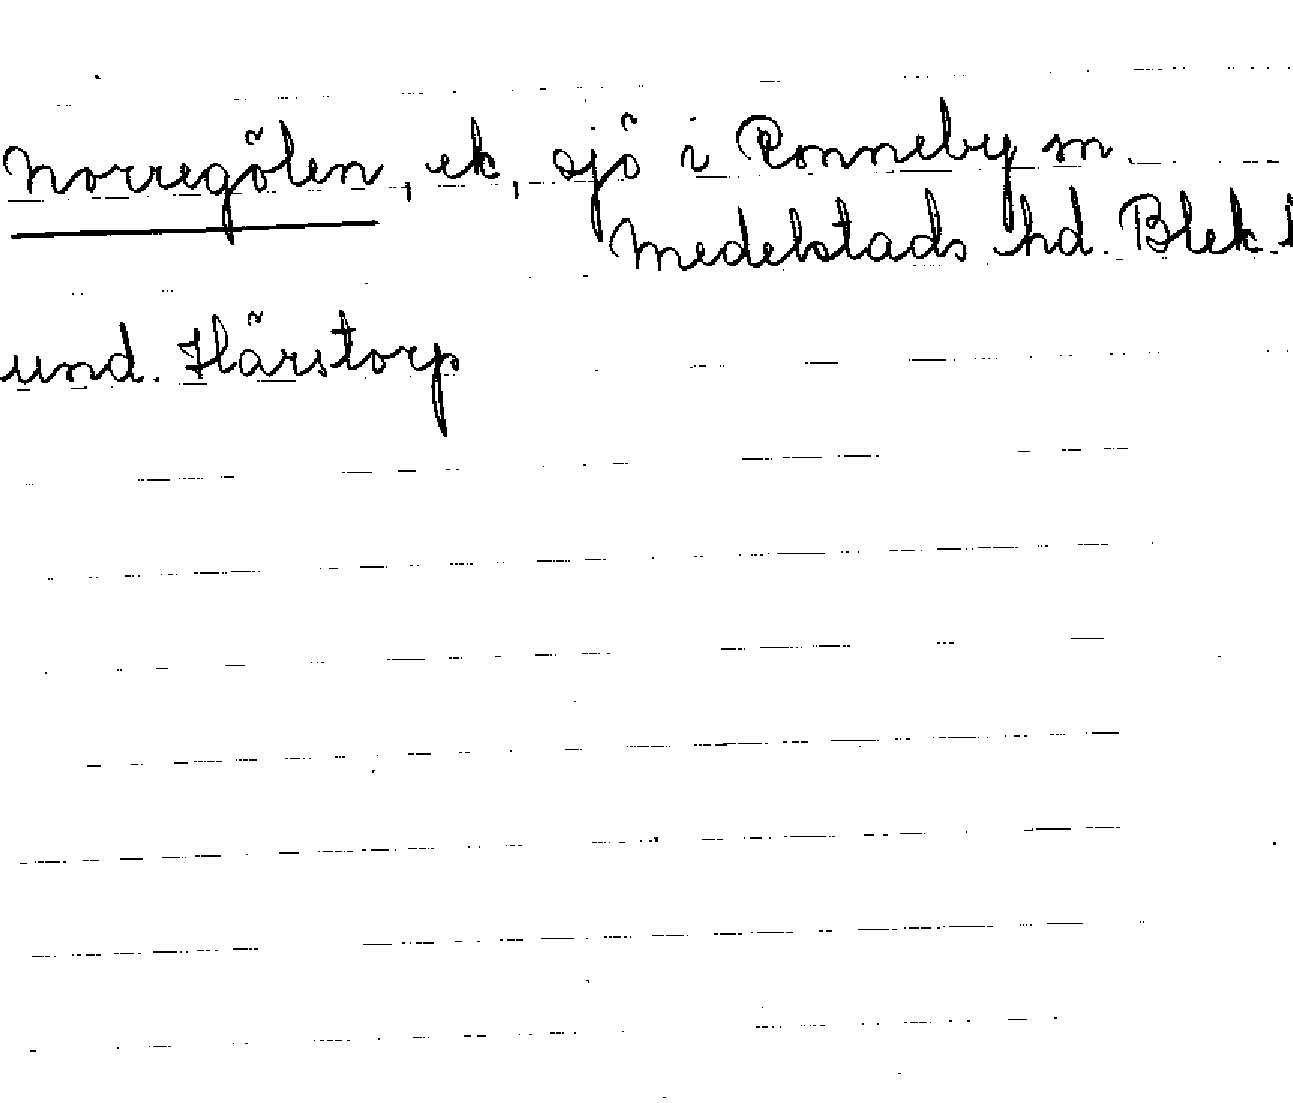 Norregölen, ek, sjö i Ronneby sn
Medelstads hd. Blek. l
und. Härstorp